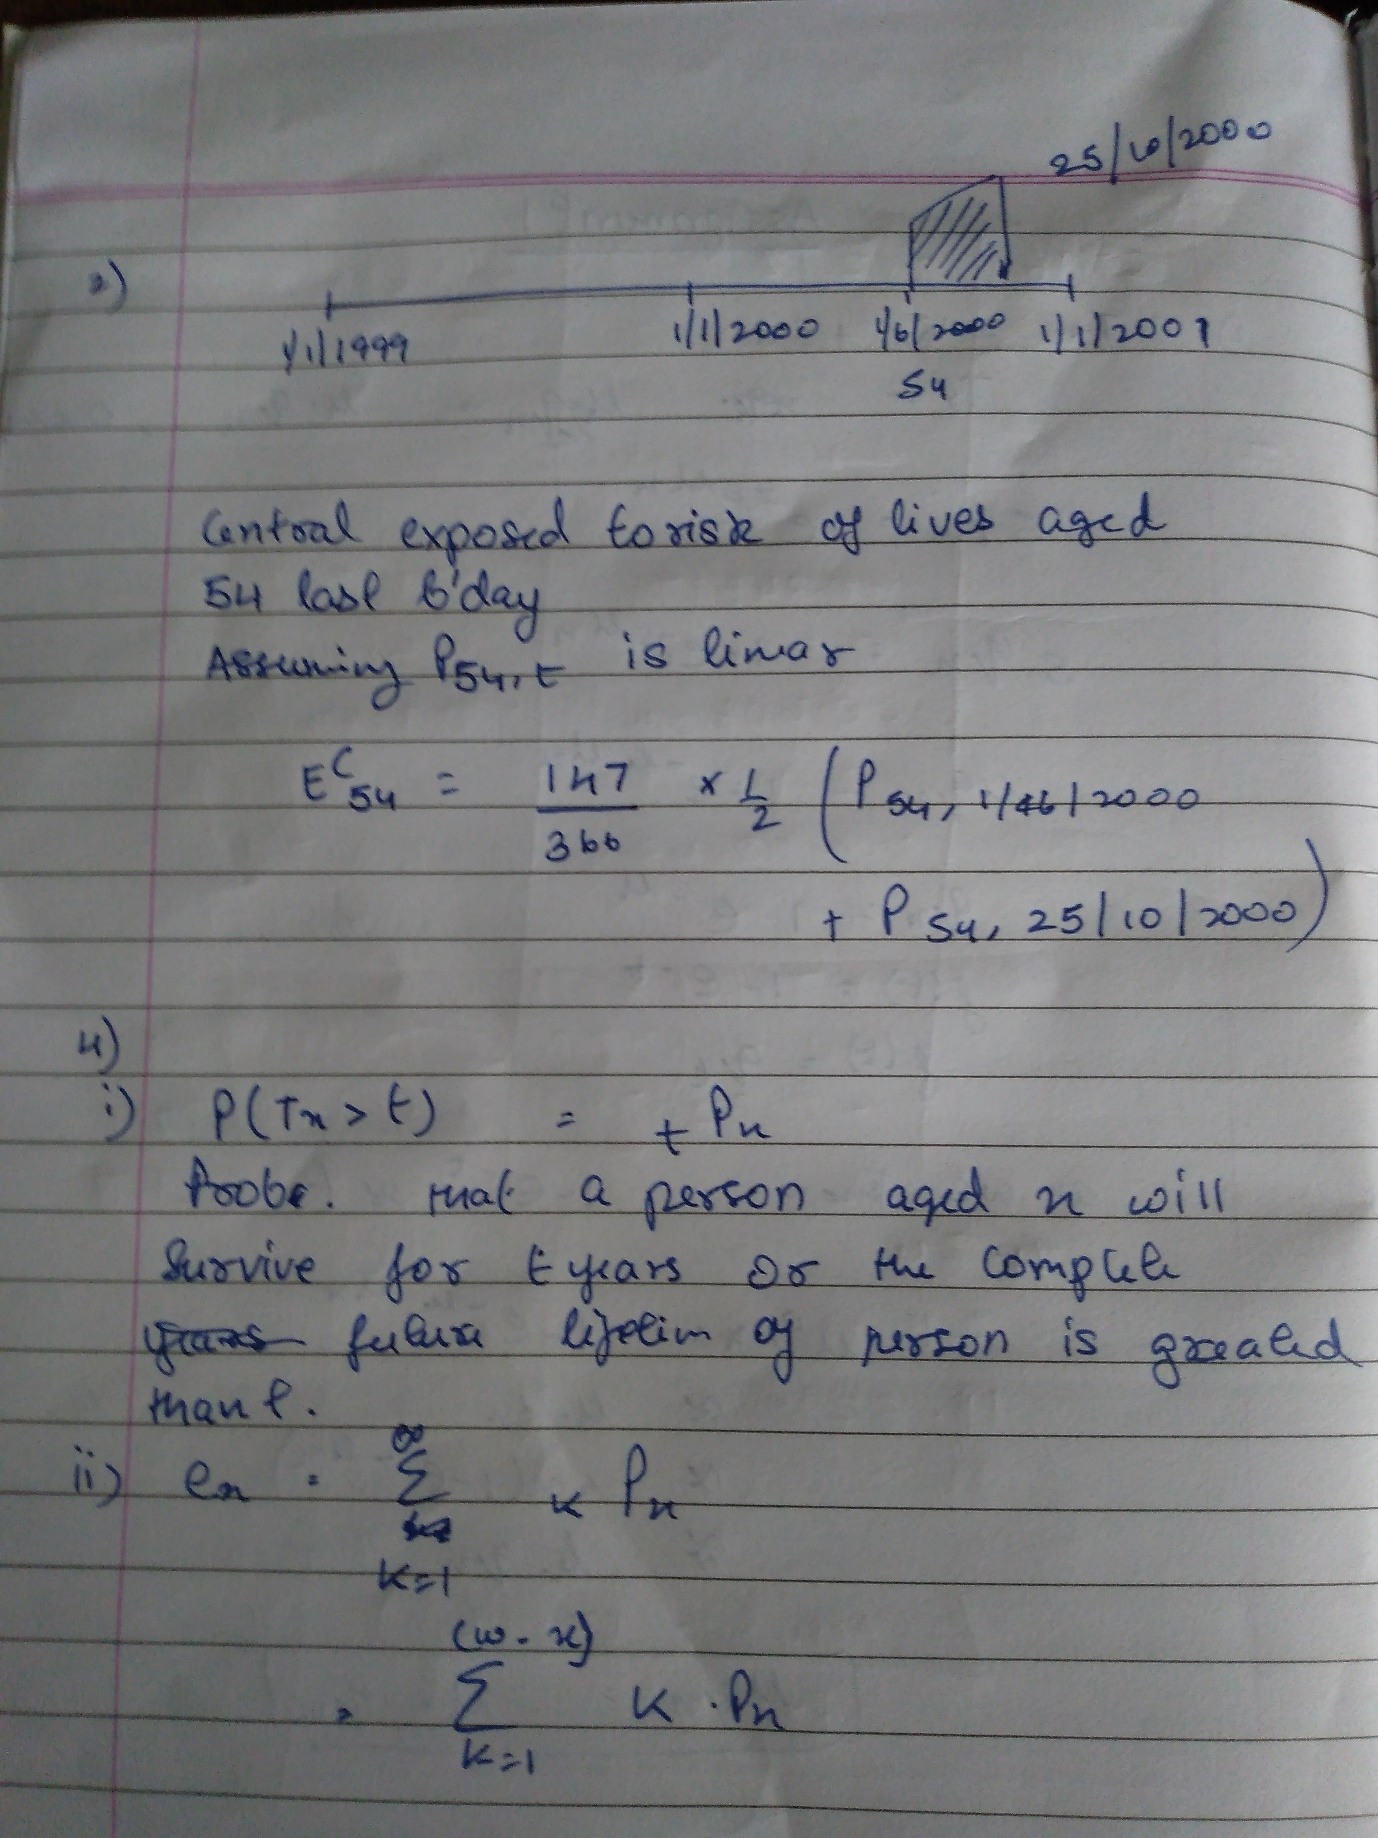 25/10/2000
2)
1/1/1999 1/1/2000 1/6/2000 1/1/2001
54
Central exposed to risk of lives aged
54 last b'day
Assuming P54,t is linear
E^C_54 = 147/366 × 1/2 (P54, 1/6/2000
+ P54, 25/10/2000)
4)
i) P(Tx > t) = tPx
Probb. that a person aged x will
survive for t years or the complete
years future lifetim of person is greated
than t.
ii) ex = ∞Σk=1 kPx
= (w-x)Σk=1 K.Px